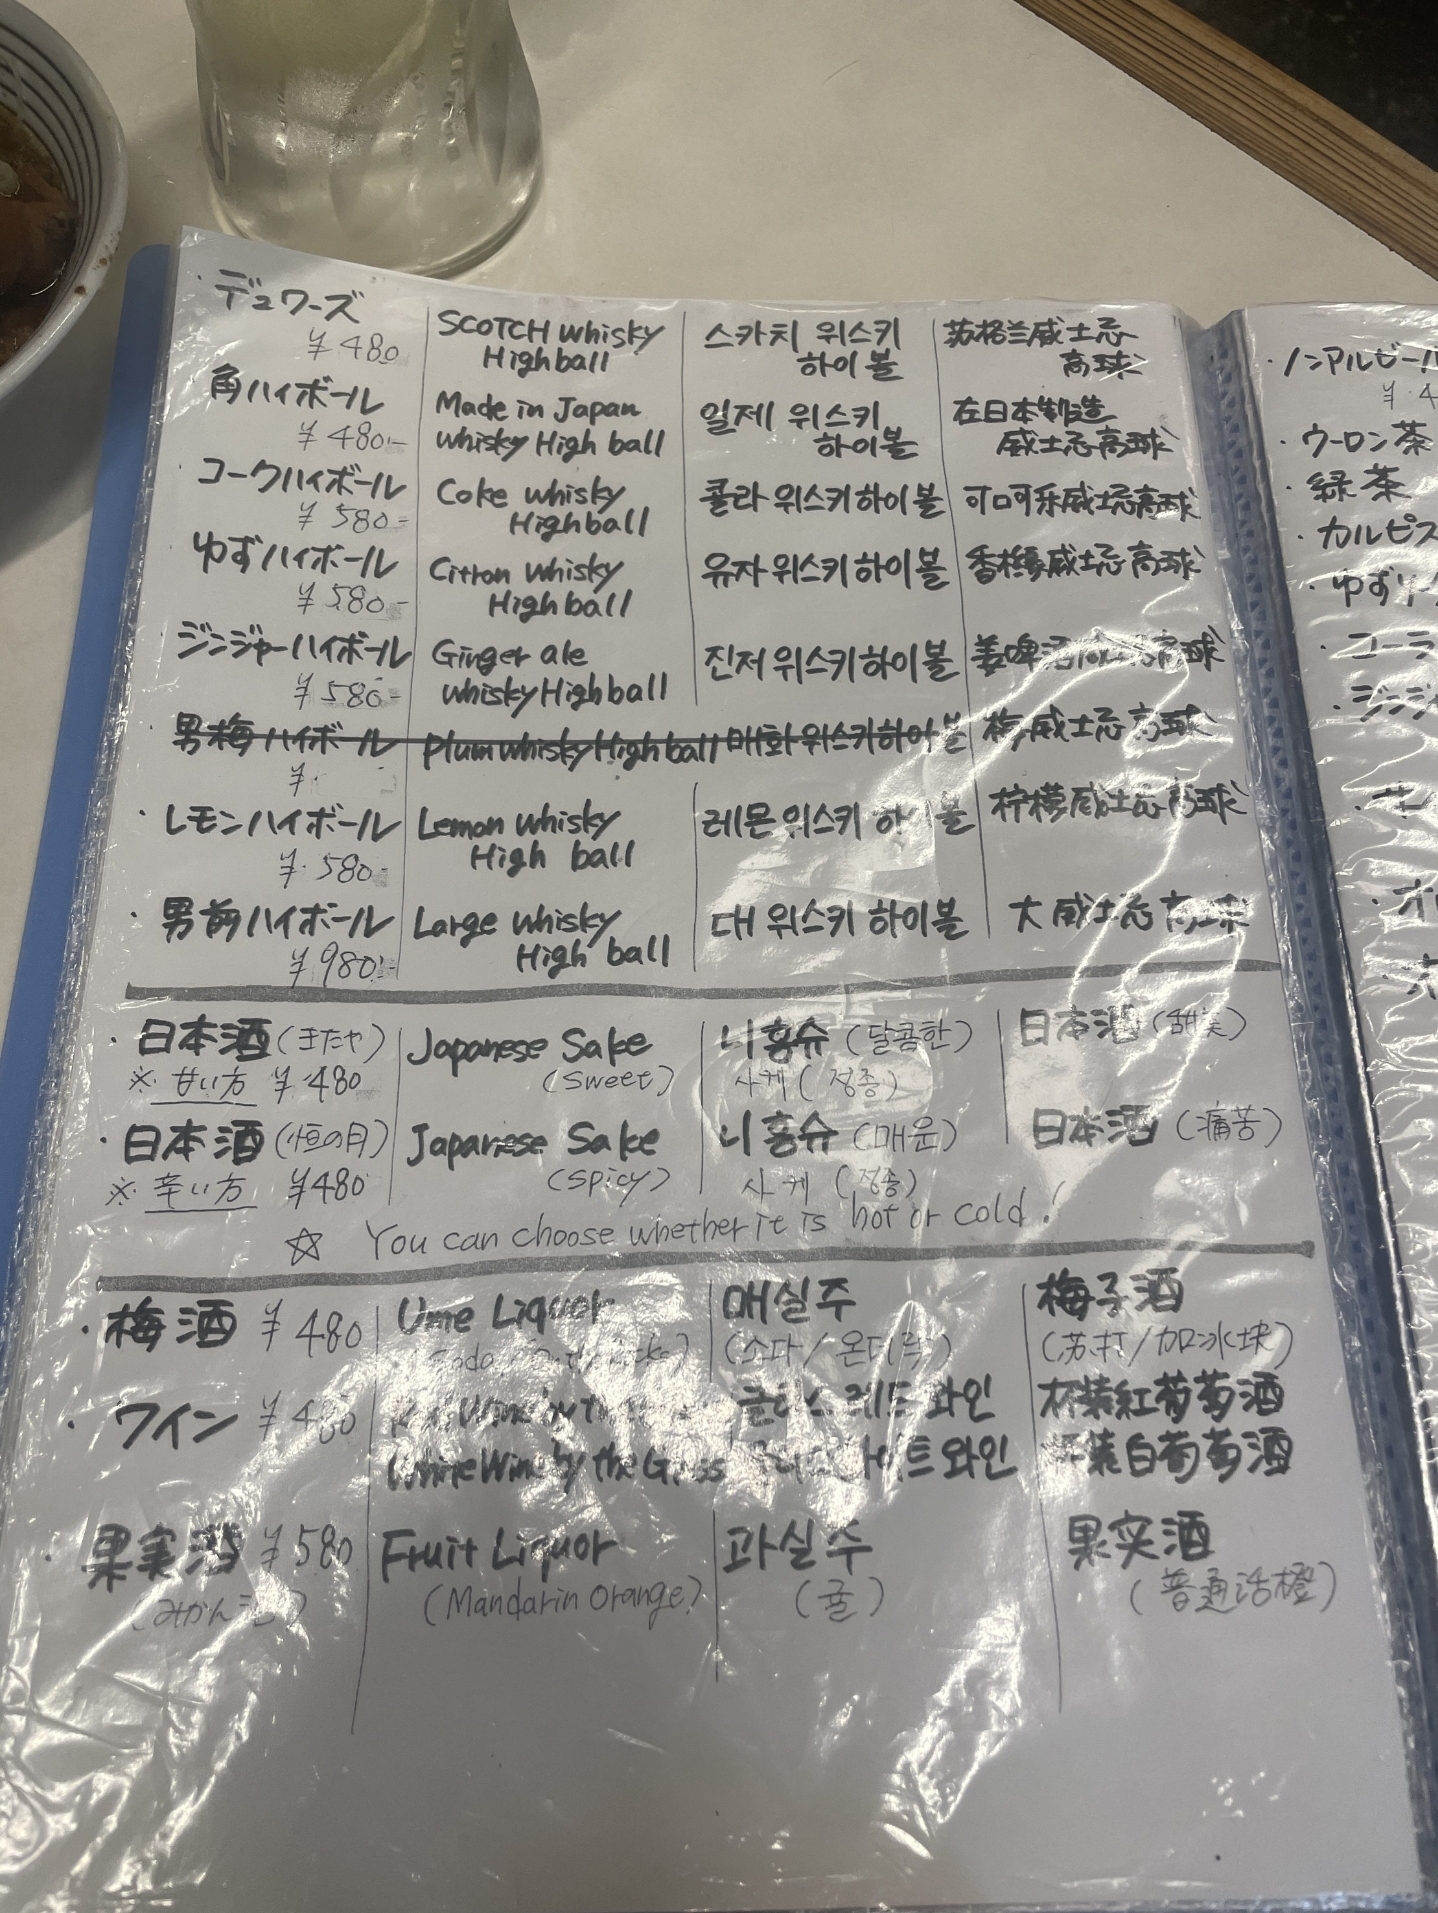 ・デュワーズ SCOTCH whisky 스카치 위스키 苏格兰威士忌
¥480 Highball 하이볼 高球
角ハイボール Made in Japan 일제 위스키 在日本製造
¥480- whisky High ball 하이볼 威士忌高球
コークハイボール Coke whisky 콜라 위스키 하이볼 可口可乐威士忌高球
¥580- Highball
ゆずハイボール Citron whisky 유자 위스키 하이볼 香橼威士忌高球
¥580- Highball
ジンジャーハイボール Ginger ale 진저 위스키 하이볼 姜啤酒威士忌高球
¥580- whisky Highball
男梅ハイボール Plum whisky High ball 매화 위스키 하이볼 梅威士忌高球
¥
・レモンハイボール Lemon whisky 레몬 위스키 하이볼 柠檬威士忌高球
¥580- High ball
・男前ハイボール Large whisky 대 위스키 하이볼 大威士忌高球
¥980- High ball
・日本酒(きたや) Japanese Sake 니홍슈 (달콤한) 日本酒 (甜美)
※甘い方 ¥480 (Sweet) 사케 (정종)
・日本酒(恒の月) Japanese Sake 니홍슈 (매운) 日本酒 (痛苦)
※辛い方 ¥480 (Spicy) 사케 (정종)
☆ You can choose whether it is hot or cold!
・梅酒 ¥480 Ume Liquor 매실주 梅子酒
(소다/온더락) (苏打/加冰块)
・ワイン ¥480 Wine by 글라스 레드 와인 杯装紅葡萄酒
White Wine by the Glass 와인 杯装白葡萄酒
・果実酒 ¥580 Fruit Liquor 과실수 果实酒
(みかん (Mandarin Orange) (귤) (普通话橙)
・ノンアルビール
¥4
・ウーロン茶
・緑茶
・カルピス
・ゆず
・コーラ
・ジンジャ